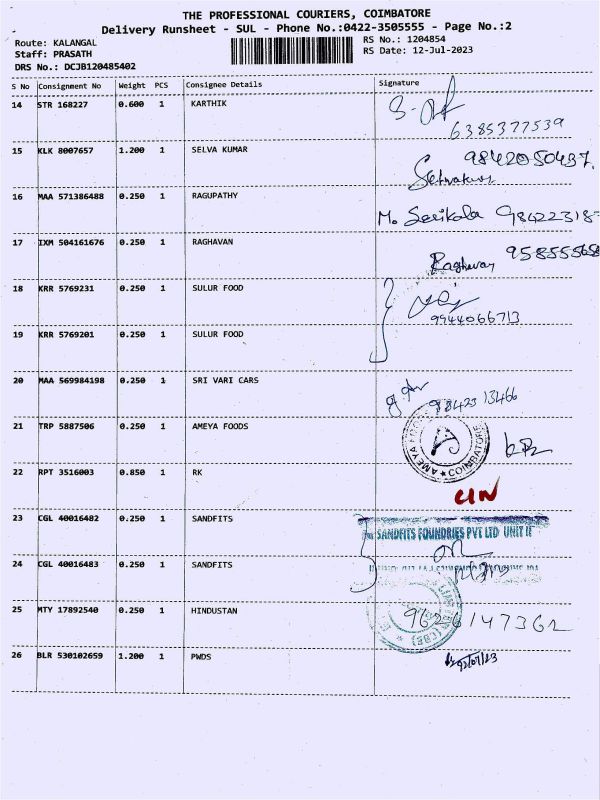 THE PROFESSIONAL COURIERS, COIMBATORE
Delivery Runsheet - SUL - Phone No.:0422-3505555 - Page No.:2
Route: KALANGAL
RS No.: 1204854
Staff: PRASATH
RS Date: 12-Jul-2023
DRS No.: DCJB120485402
S No Consignment No Weight PCS Consignee Details Signature
14 STR 168227 0.600 1 KARTHIK
6385377539
15 KLK 8007657 1.200 1 SELVA KUMAR 9842050437.
Selvakumar
16 MAA 571386488 0.250 1 RAGUPATHY
M. Sasikala 98422318
17 IXM 504161676 0.250 1 RAGHAVAN
Raghavan 958555658
18 KRR 5769231 0.250 1 SULUR FOOD
9944066713
19 KRR 5769201 0.250 1 SULUR FOOD
20 MAA 569984198 0.250 1 SRI VARI CARS
9842313466
21 TRP 5887506 0.250 1 AMEYA FOODS
AMEYA FOODS COIMBATORE
22 RPT 3516003 0.850 1 RK
23 CGL 40016482 0.250 1 SANDFITS
For SANDFITS FOUNDRIES PVT LTD UNIT II
24 CGL 40016483 0.250 1 SANDFITS
25 MTY 17892540 0.250 1 HINDUSTAN
9626147362
26 BLR 530102659 1.200 1 PWDS